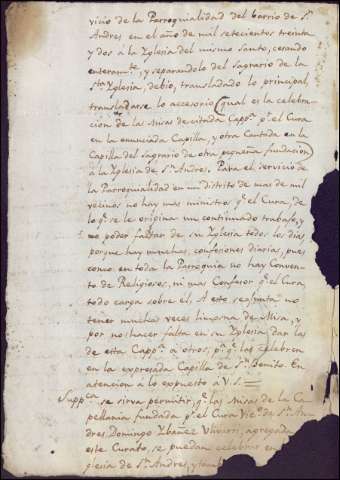 vicio de la Parroquialidad del barrio de Sn.
Andres en el año de mil setecientos treinta
y dos á la Yglesia del mismo Santo, cesando
enteramte., y separandolo del sagrario de la
Sta. Yglesia, debio, transladado lo principal,
transladarse lo accesorio (qual es la celebra-
cion de las Misas de citada Cappa. pr. el Cura
en la enunciada Capilla, y otra Cantada en la
Capilla del sagrario de otra pequeña fundacion)
á la Yglesia de Sn. Andres. Para el servicio de
la Parroquialidad en un distrito de mas de mil
vecinos no hay mas ministro qe. el Cura, de
lo qe. se le origina un continuado trabajo, y
no poder faltar de su Yglesia todos los dias
porque hay muchas confesiones diarias, pues
como en toda la Parroquia no hay Conven-
to de Religiosos, ni mas Confesor qe. el Cura,
todo carga sobre el. A esto se ajunta no
tener muchas veces limosna de Misa, y
por no hacer falta en su Yglesia dan las
de esta Cappa. á otros, pa. qe. las celebren
en la expresada Capilla de Sn. Benito. En
atencion a lo expuesto á V.S.
Suppca. se sirva permitir, qe. las Misas de la Ca-
pellania fundada pr. el Cura Vico. de Sn. An-
dres, Domingo Ybañez Ulivarri, agregada
este Curato, se puedan celebrar en
glesia de Sn. Andres, y tamb